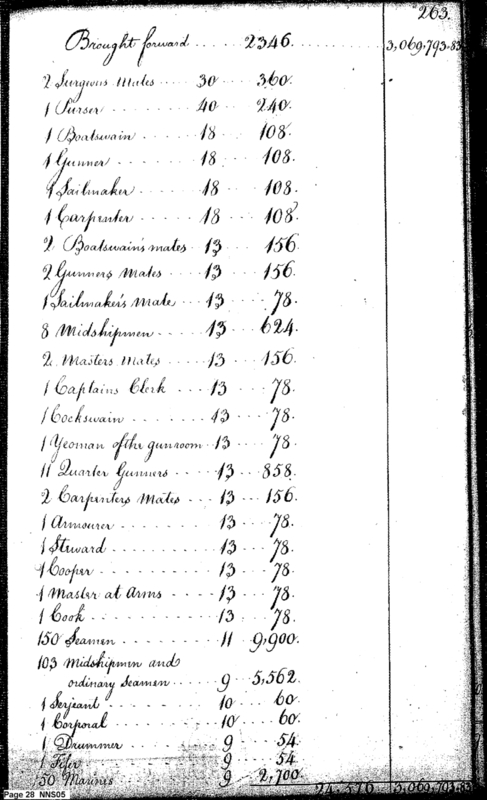 263.
Brought forward 2346. 3,069,793.83
2 Surgeons Mates 30 360.
1 Purser 40 240.
1 Boatswain 18 108.
1 Gunner 18 108.
1 Sailmaker 18 108.
1 Carpenter 18 108.
2 Boatswain's mates 13 156.
2 Gunners Mates 13 156.
1 Sailmaker's Mate 13 78.
8 Midshipmen 13 624.
2 Masters Mates 13 156.
1 Captains Clerk 13 78.
1 Cockswain 13 78.
1 Yeoman of the gunroom 13 78.
11 Quarter Gunners 13 858.
2 Carpenters Mates 13 156.
1 Armourer 13 78.
1 Steward 13 78.
1 Cooper 13 78.
1 Master at Arms 13 78.
1 Cook 13 78.
150 Seamen 11 9,900.
103 Midshipmen and
ordinary Seamen 9 5,562.
1 Serjeant 10 60.
1 Corporal 10 60.
1 Drummer 9 54.
1 Fifer 9 54.
50 Marines 9 2,700.
24,570 3,069,793.83
Page 28 NNS05